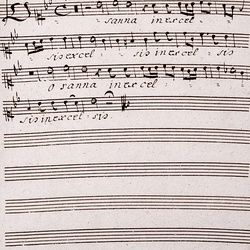 sanna in excel :
sis excel : sis in excel : sis
O sanna in excel :
sis in excel : sis.